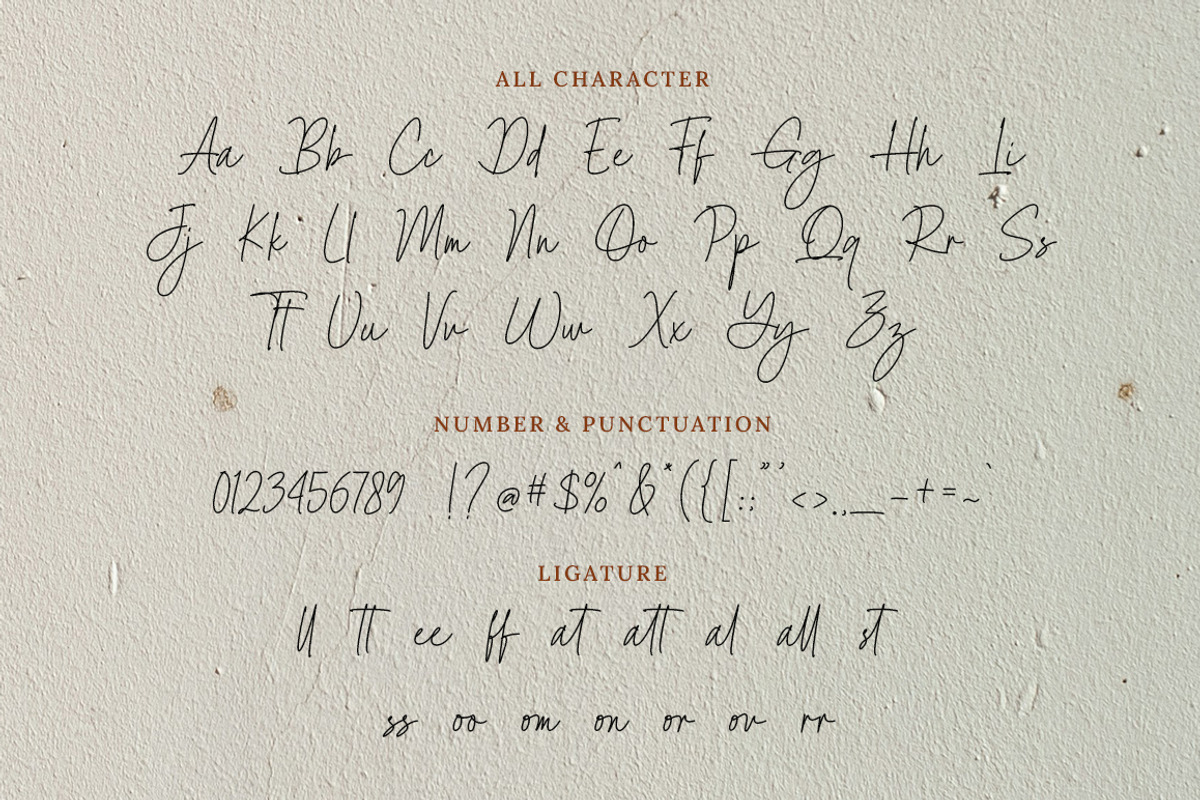 ALL CHARACTER
Aa Bb Cc Dd Ee Ff Gg Hh Ii
Jj Kk Ll Mm Nn Oo Pp Qq Rr Ss
Tt Uu Vv Ww Xx Yy Zz
NUMBER & PUNCTUATION
0123456789 !?@#$%^&*({[:;"'<>.,_-+=~`
LIGATURE
ll tt ee ff at att al all st
ss oo om on or ov rr